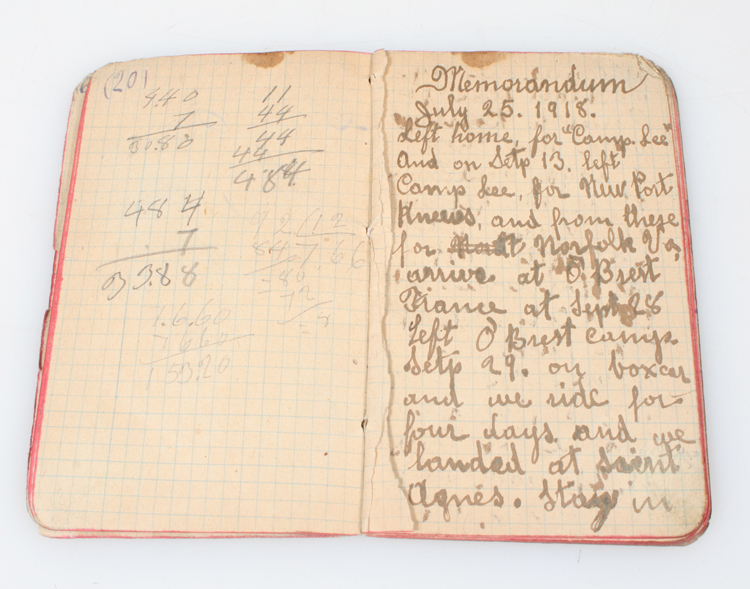 (20)
440
7
30.80
11
44
44
44
484
484
7
33.88
1.6.60
1660
153.20
Memorandum
July 25. 1918.
Left home, for "Camp. Lee"
And on Setp 13. left
Camp Lee, for New Port
Knews, and from there
for Norfolk Va,
arrive at O Brest
France at Sept 28
Left O Brest camp
Setp 29. on boxcar
and we ride for
four days and we
landed at Saint
Agnes. Stay in